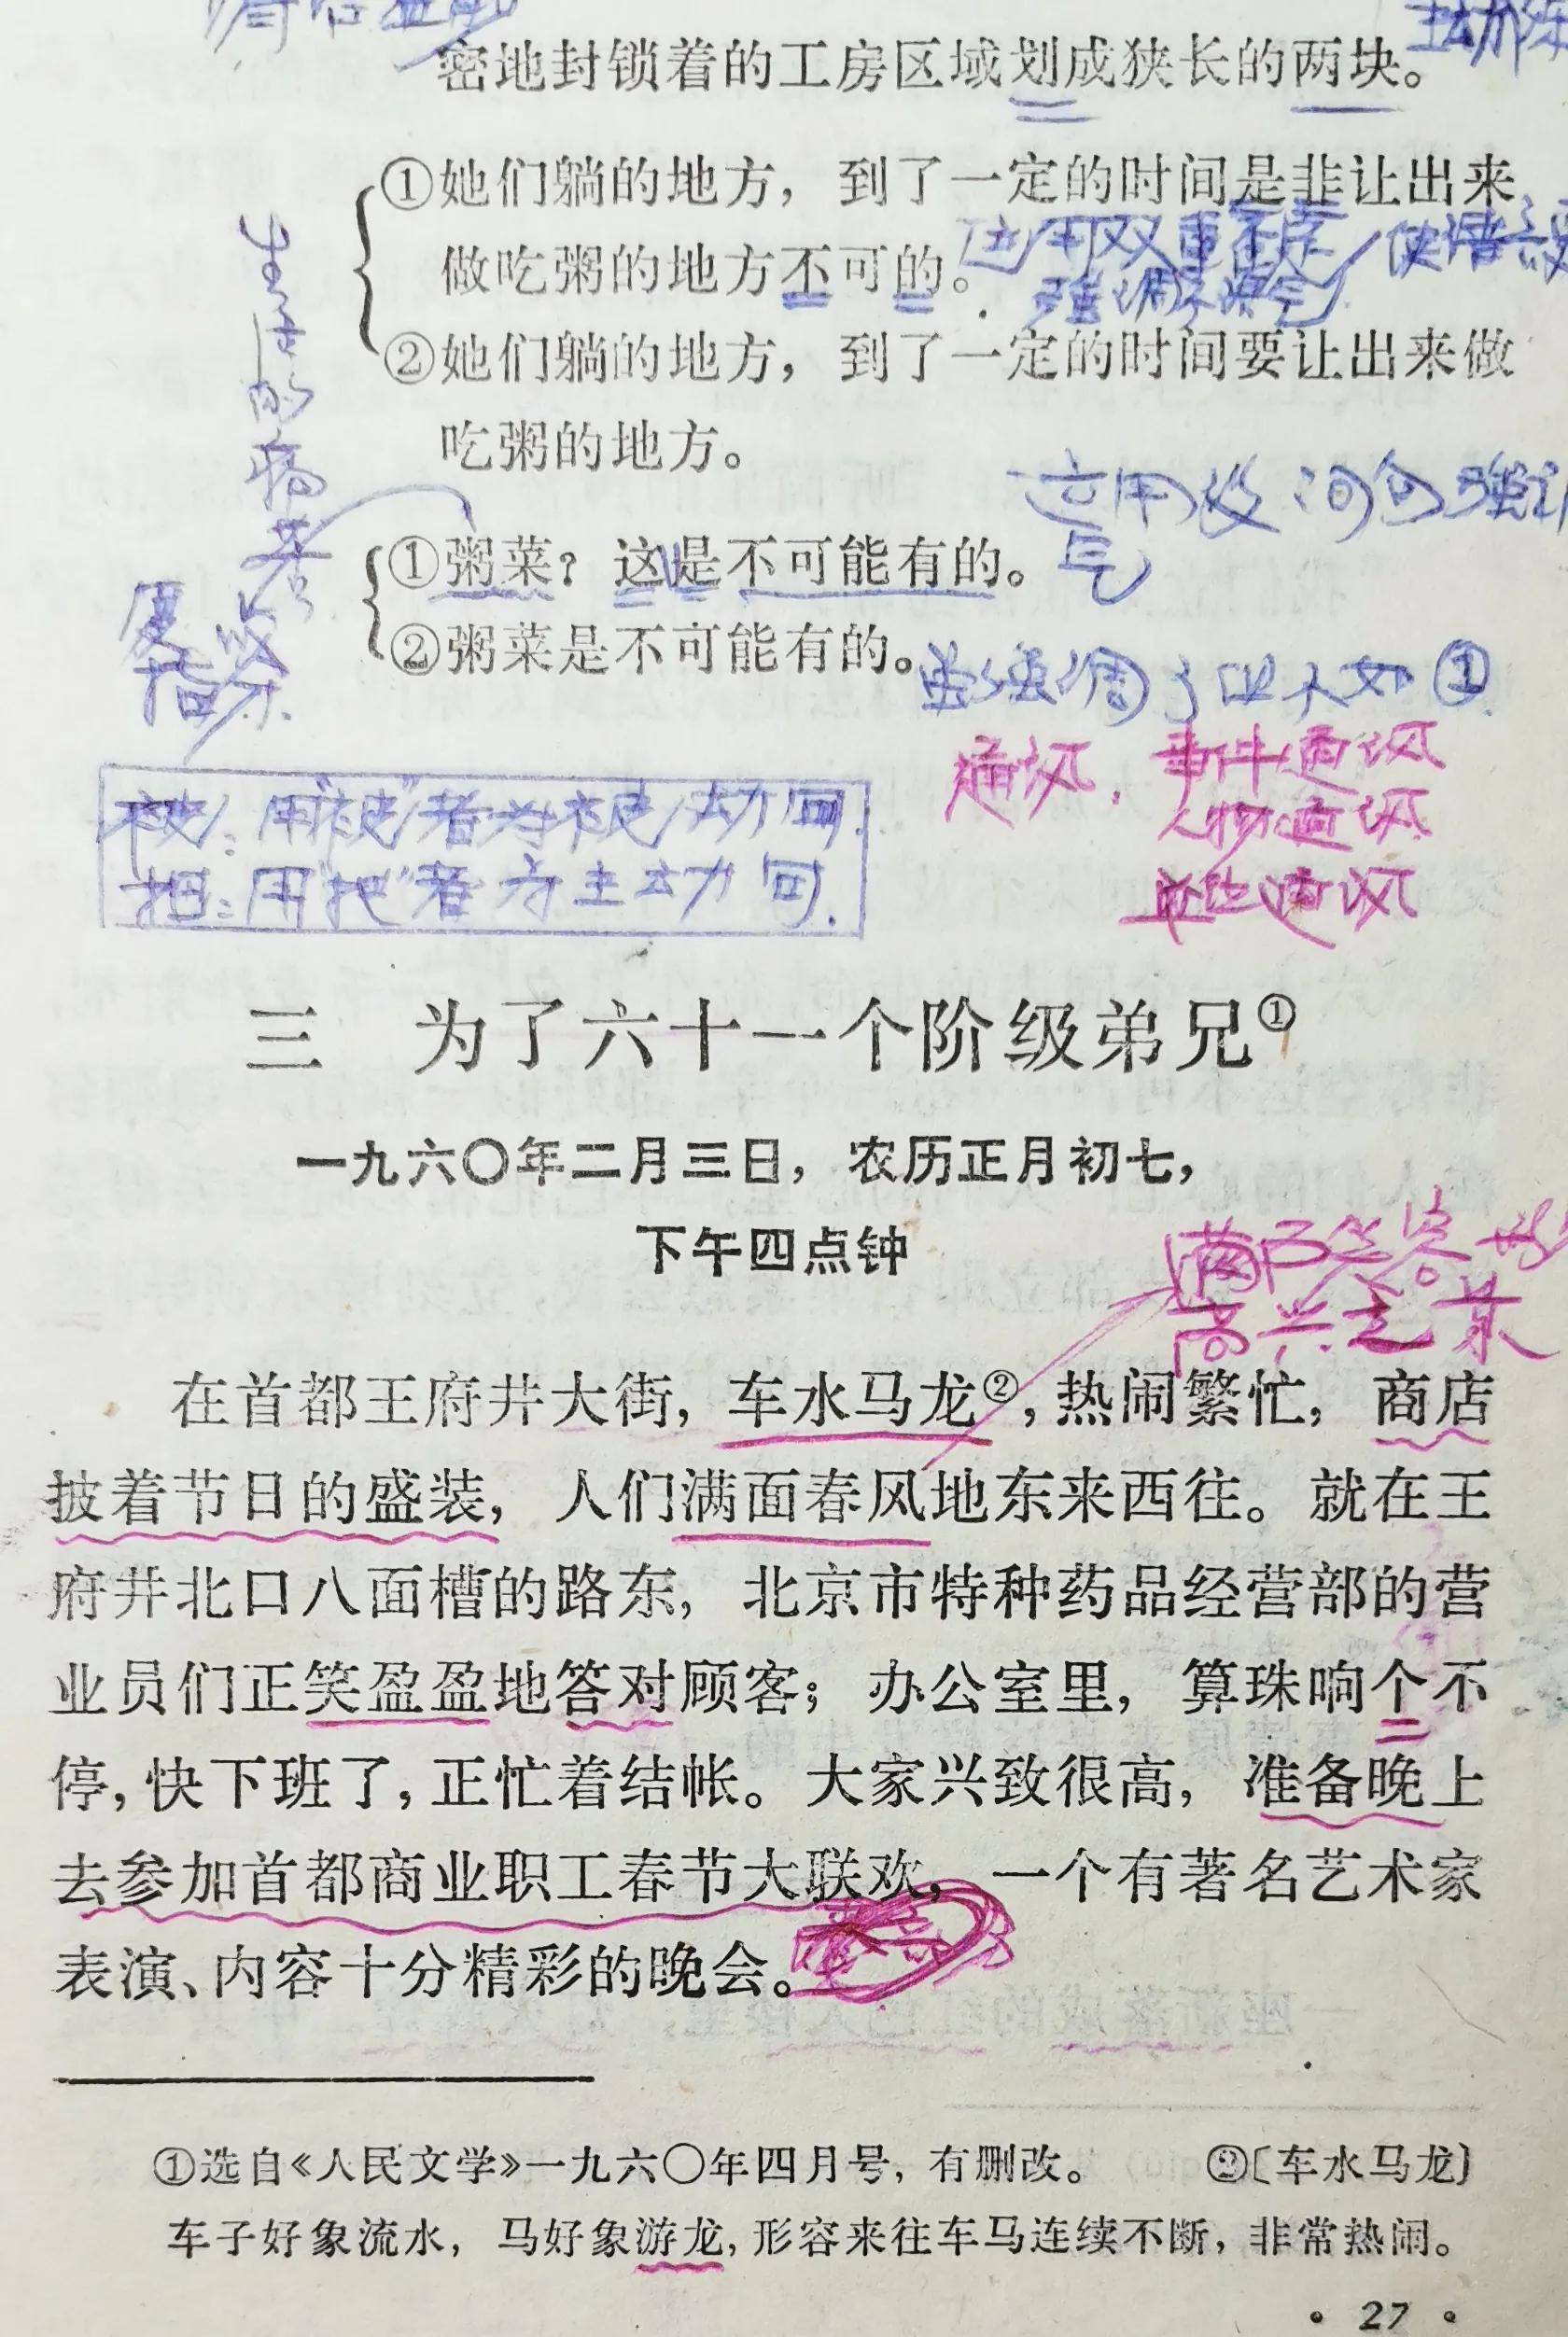 密地封锁着的工房区域划成狭长的两块。
①她们躺的地方，到了一定的时间是非让出来
做吃粥的地方不可的。
运用双重否定
强调
②她们躺的地方，到了一定的时间要让出来做
吃粥的地方。
生活的痛苦
运用设问句强调
气
①粥菜？这是不可能有的。
②粥菜是不可能有的。
强调了 不如①
复指
通讯：事件通讯
人物通讯
通讯
被：用“被”者为被动句.
把：用“把”者为主动句.
三 为了六十一个阶级弟兄①
一九六〇年二月三日，农历正月初七，
下午四点钟
满户笑容
高兴之景
在首都王府井大街，车水马龙②，热闹繁忙，商店
披着节日的盛装，人们满面春风地东来西往。就在王
府井北口八面槽的路东，北京市特种药品经营部的营
业员们正笑盈盈地答对顾客；办公室里，算珠响个不
停，快下班了，正忙着结帐。大家兴致很高，准备晚上
去参加首都商业职工春节大联欢，一个有著名艺术家
表演、内容十分精彩的晚会。
①选自《人民文学》一九六〇年四月号，有删改。 ②〔车水马龙〕
车子好象流水，马好象游龙，形容来往车马连续不断，非常热闹。
· 27 ·